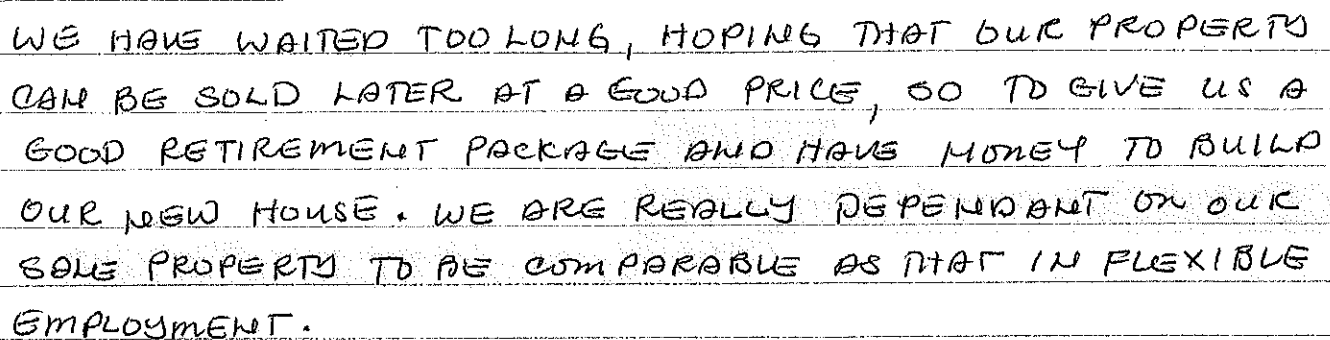 WE HAVE WAITED TOO LONG, HOPING THAT OUR PROPERTY
CAN BE SOLD LATER AT A GOOD PRICE, SO TO GIVE US A
GOOD RETIREMENT PACKAGE AND HAVE MONEY TO BUILD
OUR NEW HOUSE. WE ARE REALLY DEPENDANT ON OUR
SALE PROPERTY TO BE COMPARABLE AS THAT IN FLEXIBLE
EMPLOYMENT.